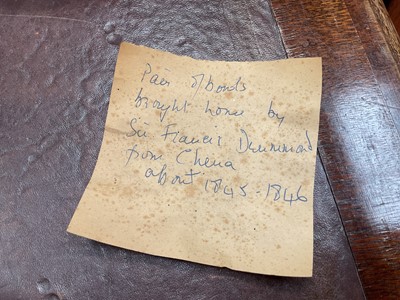 Pair of bowls
brought home by
Sir Francis Drummond
from China
about 1845-1846